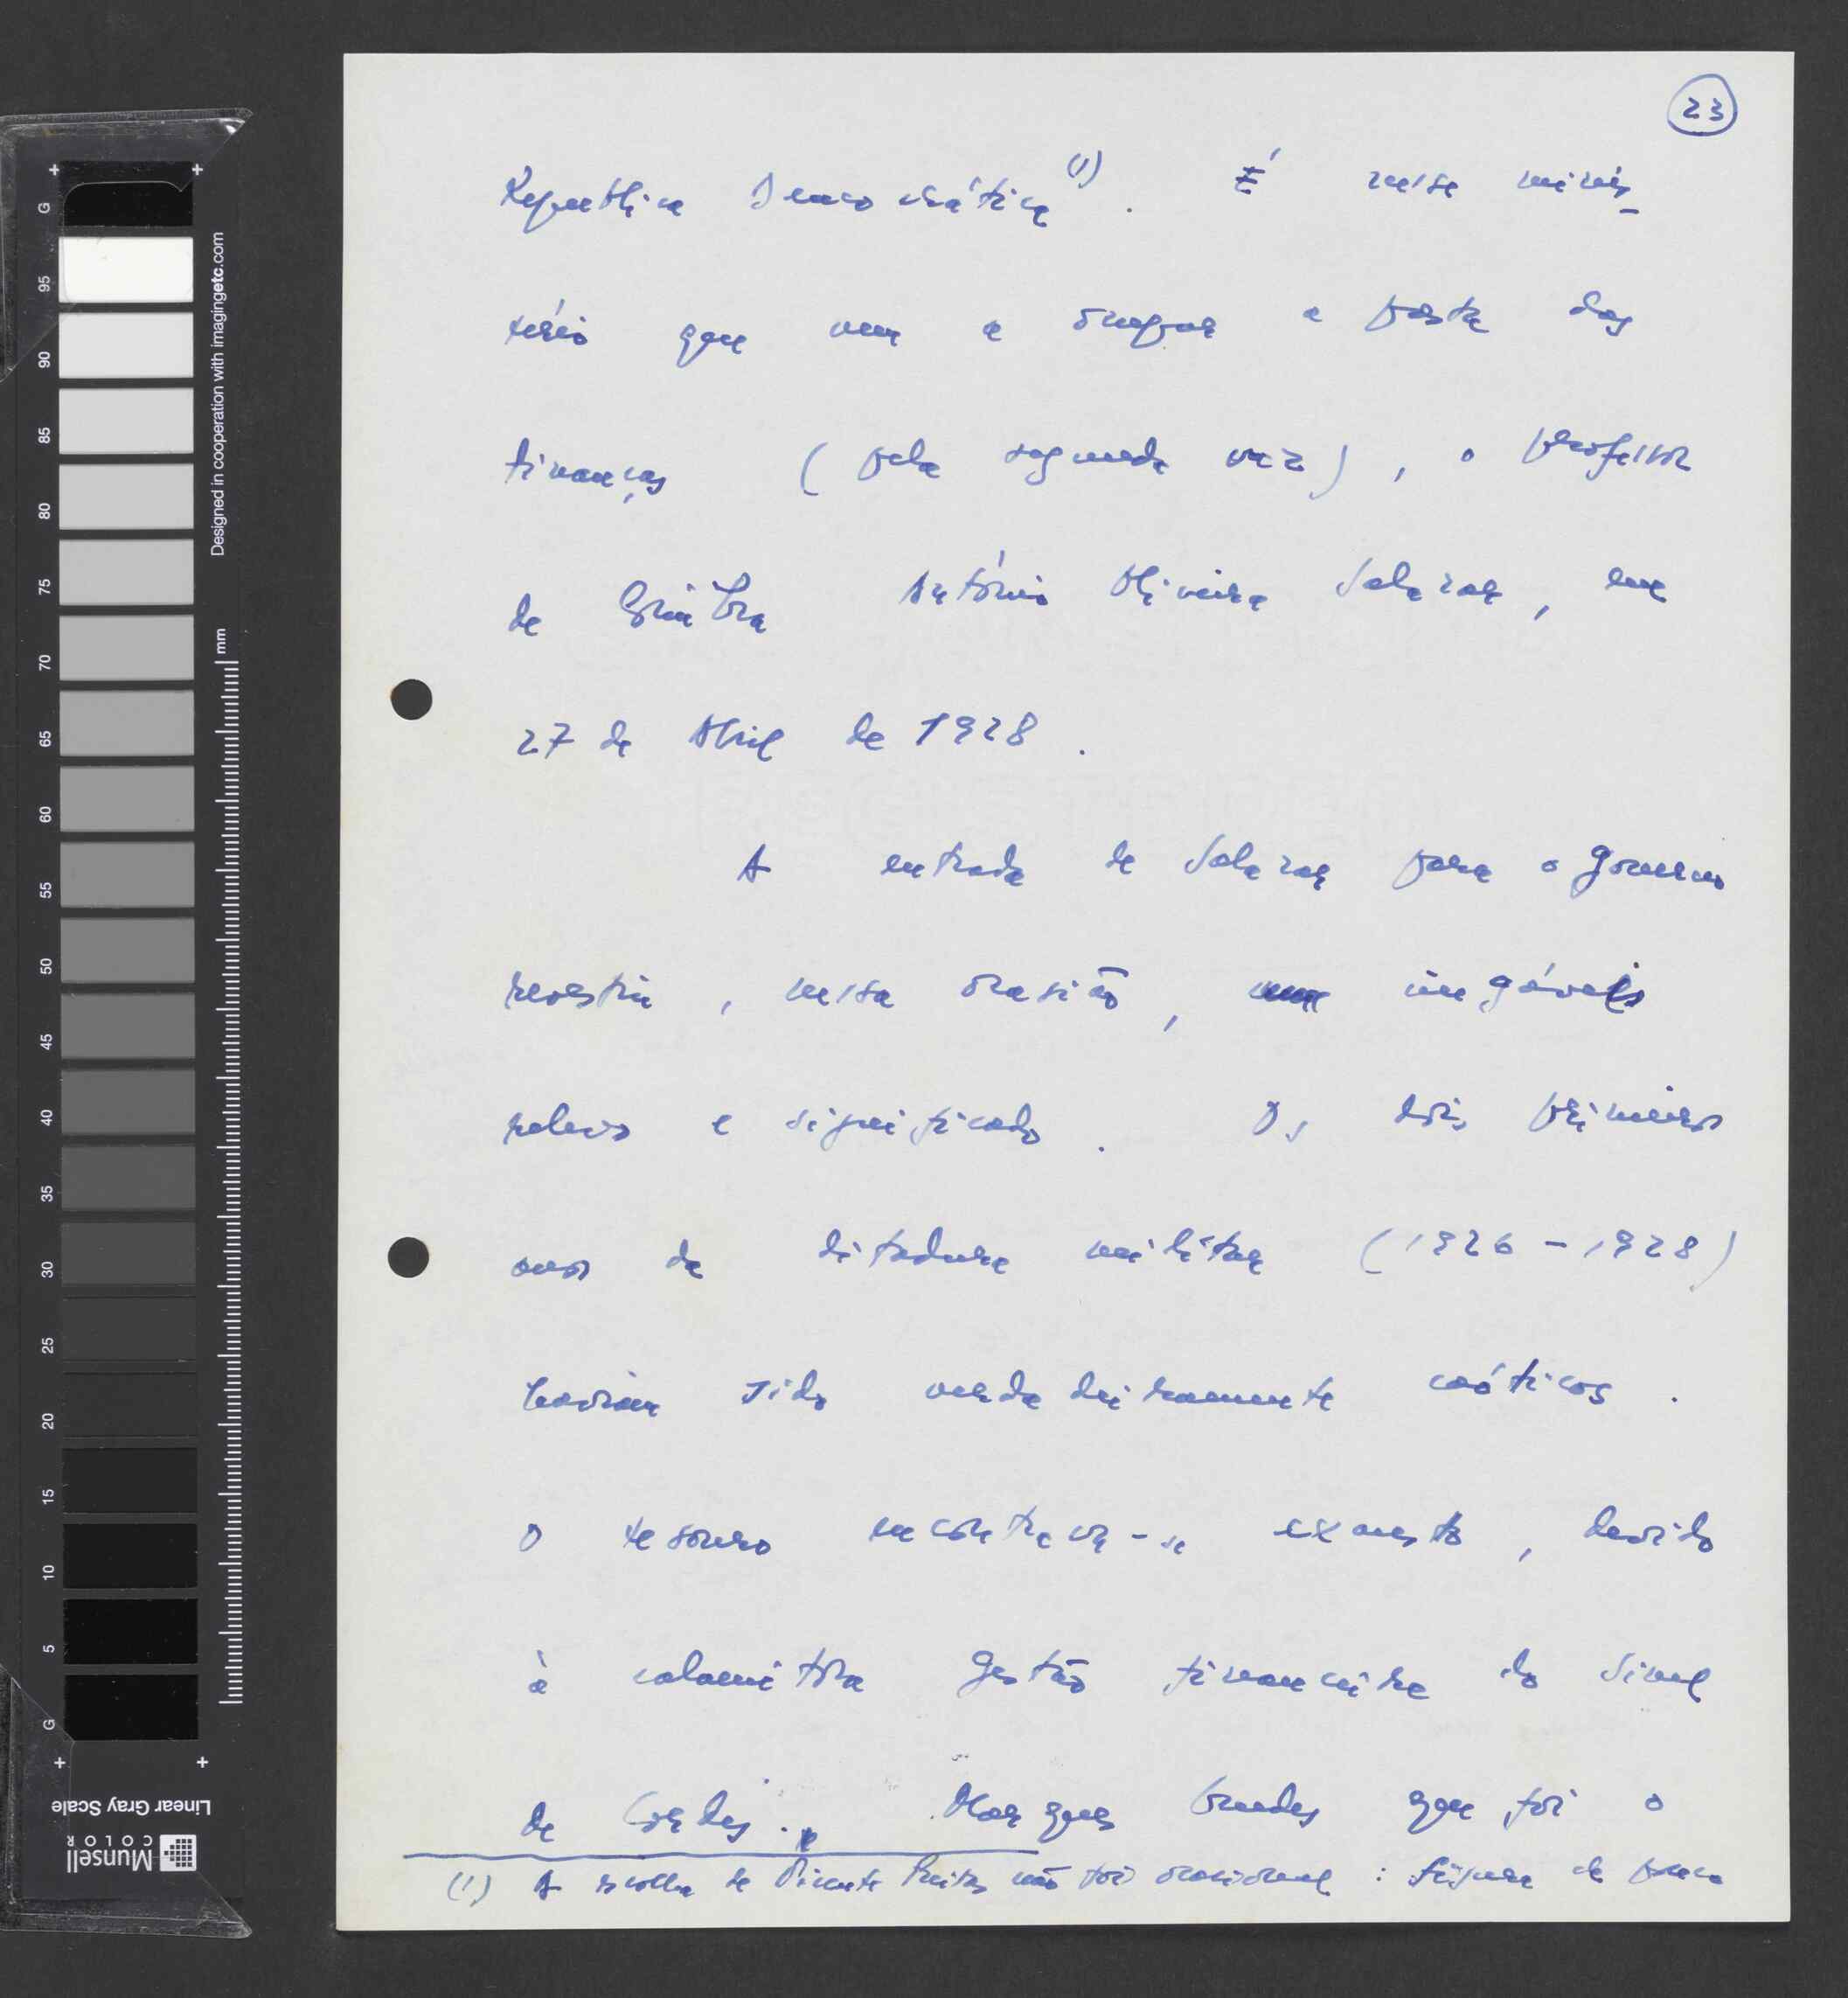 23
República Democrática (1). É nesse minis-
tério que vem a ocupar a pasta das
finanças (pela segunda vez), o professor
de Coimbra António Oliveira Salazar, em
27 de Abril de 1928.
A entrada de Salazar para o governo
revestiu, nessa ocasião, inegáveis
relevo e significado. Os dois primeiros
anos da ditadura militar (1926-1928)
haviam sido verdadeiramente caóticos.
O tesouro encontrava-se exausto, devido
à calamitosa gestão financeira do Sinel
de Cordes. Marques Guedes que foi o
(1) A escolha de Vicente Freitas não foi ocasional: figura de pouca
G 95 90 85 80 75 70 65 60 55 50 45 40 35 30 25 20 15 10 5 G
Designed in cooperation with imagingetc.com
mm
Linear Gray Scale
Munsell
COLOR